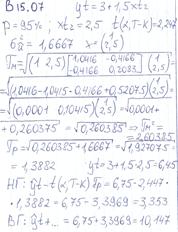 В 15.07 ŷt = 3 + 1,5xt2
p = 95% ; xt2 = 2,5 t(α,T-K) = 2,447
σ̂²ε = 1,6667 x = (1 2,5)
= √((1,0416-1,0415 -0,4166+0,52075)(1 2,5)) =
= √((0,0001 0,10415)(1 2,5)) = √(0,0001+
+0,260375) = √0,260385 ⇒ Γm² =
= 2,60385
Γp = √0,260385+1,6667 = √1,927075 =
= 1,3882 ŷt = 3+1,5·2,5 = 6,45
НГ: ŷt - t(α,T-K) Γp = 6,75-2,447·
·1,3882 = 6,75 - 3,3969 = 3,353
ВГ: ŷt +... = 6,75+3,3969 = 10,147